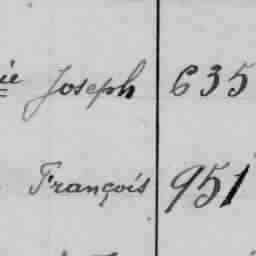 ie Joseph 635
François 951